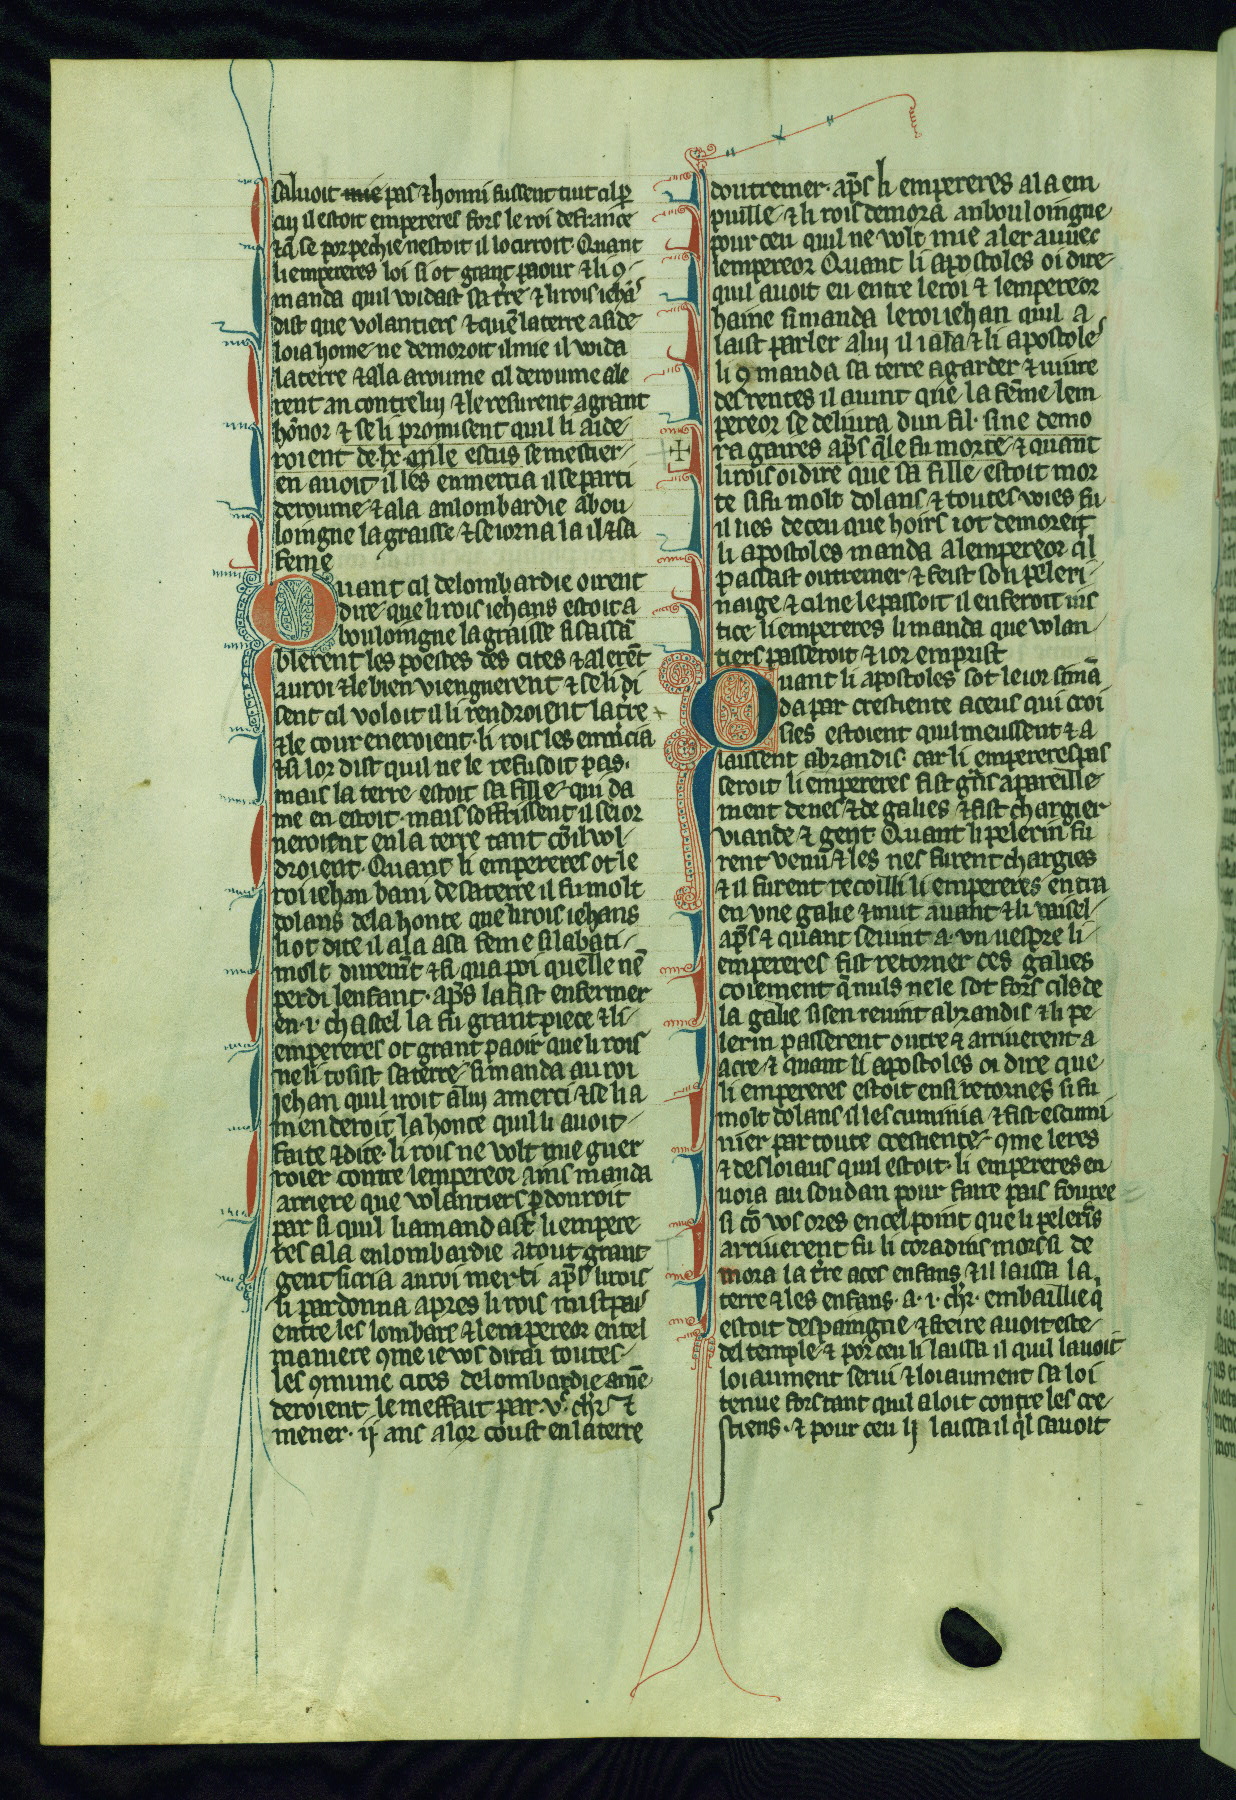 saluoit mie pas ⁊ honni fussent tuit cil p̲
cuj il estoit empereres fors le roi de france
⁊ q̃ se por pechie nestoit il lociroit· Quant
li empereres loi si ot grant paour ⁊ li ꝯ
manda quil widast sa t̃re ⁊ li rois ieha̅s
dist que volantiers ⁊ que̅ la terre aside
loiahome ne demoroit il mie il wida
la terre ⁊ ala a roume cil de roume ale
rent an contre luj ⁊ le resurent a grant
ho̅nor ⁊ se li promisent quil li aide
roient de lx· mile escus se mestier
en auoit il les en mercia il se parti
de roume ⁊ ala an lombardie a bou
loingne la graisse ⁊ seiorna la il ⁊ sa
feme
Quant cil de lombardie oirent
dire que li rois iehans estoit a
bouloingne la graisse si sassa̅
blerent les poestes des cites ⁊ alere̅t
au roi ⁊ le bien viengnerent ⁊ se li di
sent cil voloit il li rendroient la t̃re
⁊ le coureneroient· li rois les en m̃cia
⁊ si lor dist quil ne le refusoit pas·
mais la terre estoit sa fille qui da
me en estoit· mais soffrissent il seior
neroient en la terre tant co̅ il wl
droient· Quant li empereres ot le
roi iehan bani de sa terre il fu molt
dolans de la honte que li rois iehans
li ot dite il ala a sa feme si la bati
molt durem̅t ⁊ a qua poi quelle ne̅
perdi lenfant· ap̃s la fist enfermer
en ·i· chastel la fu grant piece ⁊ li
empereres ot grant paoir que li rois
ne li tosist sa terre si manda au roi
iehan quil iroit a luj a merci ⁊ se li a
menderoit la honte quil li auoit
faite ⁊ dite· li rois ne volt mie guer
roier contre lempereor ains manda
arriere que volantiers p̲donroit
par si quil li amandast li empere
res ala en lombardie a tout grant
gent si cria au roi merci ap̃s li rois
li pardonna apres li rois mist pais
entre les lombars ⁊ lempereor en tel
maniere ꝯme ie wos dirai toutes
les ꝯmune cites de lombardie ame̅
deroient le meffait par ·v·c· ch̃rs ⁊
mener ·ij· ans a lor coust en la terre
doutremer· ap̃s li empereres ala em
puille ⁊ li rois demora an bouloingne
pour ceu quil ne volt mie aler auuec
lempereor Quant li apostoles oi dire
quil auoit eu entre le roi ⁊ lempereor
haine si manda le roi iehan quil a
laist parler a luj il i ala ⁊ li apostoles
li ꝯmanda sa terre a garder ⁊ viure
des rentes il auint que la fe̅me lem
pereor se deliura dun fil· si ne demo
ra gaires ap̃s q̃le fu morte ⁊ quant
li rois oi dire que sa fille estoit mor
te si fu molt dolans ⁊ toutes wies fu
il lies de ceu que hoirs i ot demoreit
li apostoles manda a lempereor q̃l
passast outremer ⁊ feist son peleri
naige ⁊ cil ne le passoit il en feroit ius
tice li empereres li manda que wlan
tiers passeroit ⁊ ior emprist
Quant li apostoles sot le ior si ma̅
da par crestiente a ceus qui croi
sies estoient quil meussent ⁊ a
laissent a brandis· car li empereres pas
seroit li empereres fist gr̃ns apareille
ment de nes ⁊ de galies ⁊ fist chargier
viande ⁊ gent Quant li pelerin fu
rent venu ⁊ les nes furent chargies
⁊ il furent recoilli li empereres entra
en vne galie ⁊ mut auant ⁊ li vaisel
ap̃s ⁊ quant se vint a· vn uespre li
empereres fist retorner ces galies
coiement q̃ nuls ne le sot fors cils de
la galie si sen reuint a brandis ⁊ li pe
lerin passerent outre ⁊ arriuerent a
acre ⁊ quant li apostoles oi dire que
li empereres estoit ensi retornes si fu
molt dolans il lescuminia ⁊ fist escumi
nier par toute crestiente ꝯme leres
⁊ desloiaus quil estoit· li empereres en
uoia au soudan pour faire pais fouree
si co̅ wos ores en cel point que li pelerins
arriuerent fu li coradins mors si de
mora la t̃re a ces enfans ⁊ il laissa la
terre ⁊ les enfans· a ·i· ch̃r· en baillie q̇
estoit despaingne ⁊ freire auoit este
del temple ⁊ por ceu li laissa il quil lauoit
loiaument serui ⁊ loiaument sa loi
tenue fors tant quil aloit contre les cre
stiens· ⁊ pour ceu lj laissa il q̃l sauoit